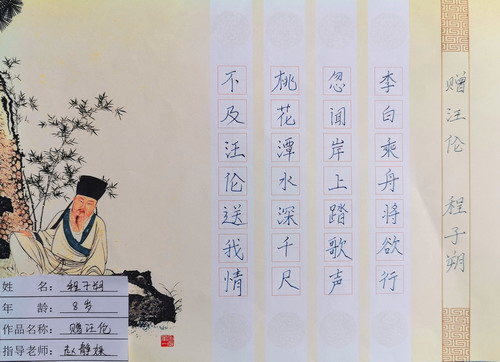 赠汪伦 程子朔
李白乘舟将欲行
忽闻岸上踏歌声
桃花潭水深千尺
不及汪伦送我情
姓 名: 程子朔
年 龄: 8岁
作品名称: 赠汪伦
指导老师: 赵静姝